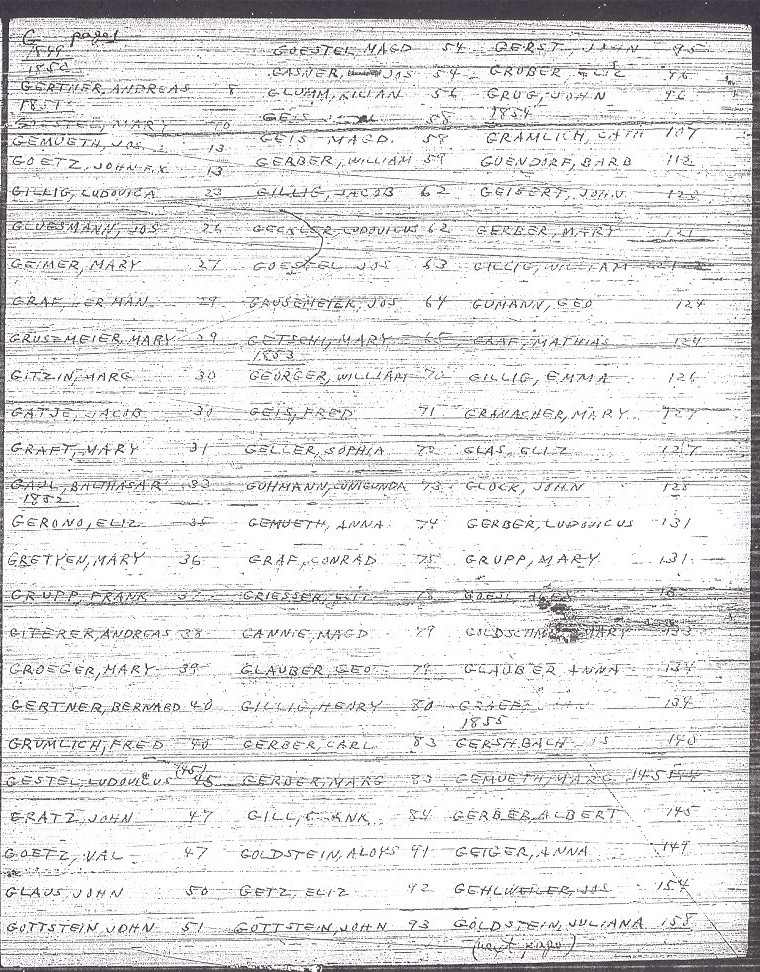 G pages
1849
1850
GERTNER, ANDREAS 8
1851
GOESTEL, MARY 10
GEMUETH, JOS. 13
GOETZ, JOHN F.X. 13
GILLIG, LUDOVICA 23
GLUESMANN, JOS 26
GEIMER, MARY 27
GRAF, HERMAN 29
GRUSZMEIER, MARY 29
GITZIN, MARG 30
GATJE, JACOB 30
GRAFT, MARY 31
GAUL, BALTHASAR 33
1852
GERONO, ELIZ 35
GRETYEN, MARY 36
GRUPP, FRANK 37
GITERER, ANDREAS 38
GROEGER, MARY 39
GERTNER, BERNARD 40
GRUMLICH, FRED 40
GESTEL, LUDOVICUS (45) 45
ERATZ, JOHN 47
GOETZ, VAL 47
GLAUS, JOHN 50
GOTTSTEIN, JOHN 51
GOESTEL, MAGD 54
GASNER, JOS 54
GLUMM, KILIAN 56
GEIS 58
GEIS MAGD. 58
GERBER, WILLIAM 59
GILLIG, JACOB 62
GECKLER, LUDOVICUS 62
GOESTEL, JOS 63
GRUSEMEIER, JOS 64
GETSCHI, MARY 65
1853
GEORGER, WILLIAM 70
GEIS, FRED 71
GELLER, SOPHIA 72
GUHMANN, CUNIGUNDA 73
GEMUETH, ANNA 74
GRAF, CONRAD 75
GRIESSER, ELIZ 78
CANNIE, MAGD 79
GLAUBER, GEO 79
GILLIG, HENRY 80
GERBER, CARL 83
GERBER, MARG 83
GILL, 84
GOLDSTEIN, ALOYS 91
GETZ, ELIZ 92
GOTTSTEIN, JOHN 93
GERST, JOHN 95
GRUBER, ELIZ 96
GRUG, JOHN 96
1854
GRAMLICH, CATH 107
GUENDORF, BARB 112
GEISERT, JOHN
GERBER, MARY 121
GILLIG, WILLIAM
GUMANN, GEO 124
GRAF, MATHIAS 124
GILLIG, EMMA 126
GRANACHER, MARY 127
GLAS, ELIZ 127
GLOCK, JOHN 128
GERBER, LUDOVICUS 131
GRUPP, MARY 131
GOESL
MARY 133
GLAUBER ANNA 134
134
1855
GERSHBACH 140
GEMUETH, MARG. 145
GERBER, ALBERT 145
GEIGER, ANNA 149
GEHLWEILER, JOS 154
GOLDSTEIN, JULIANA 158
(next page)